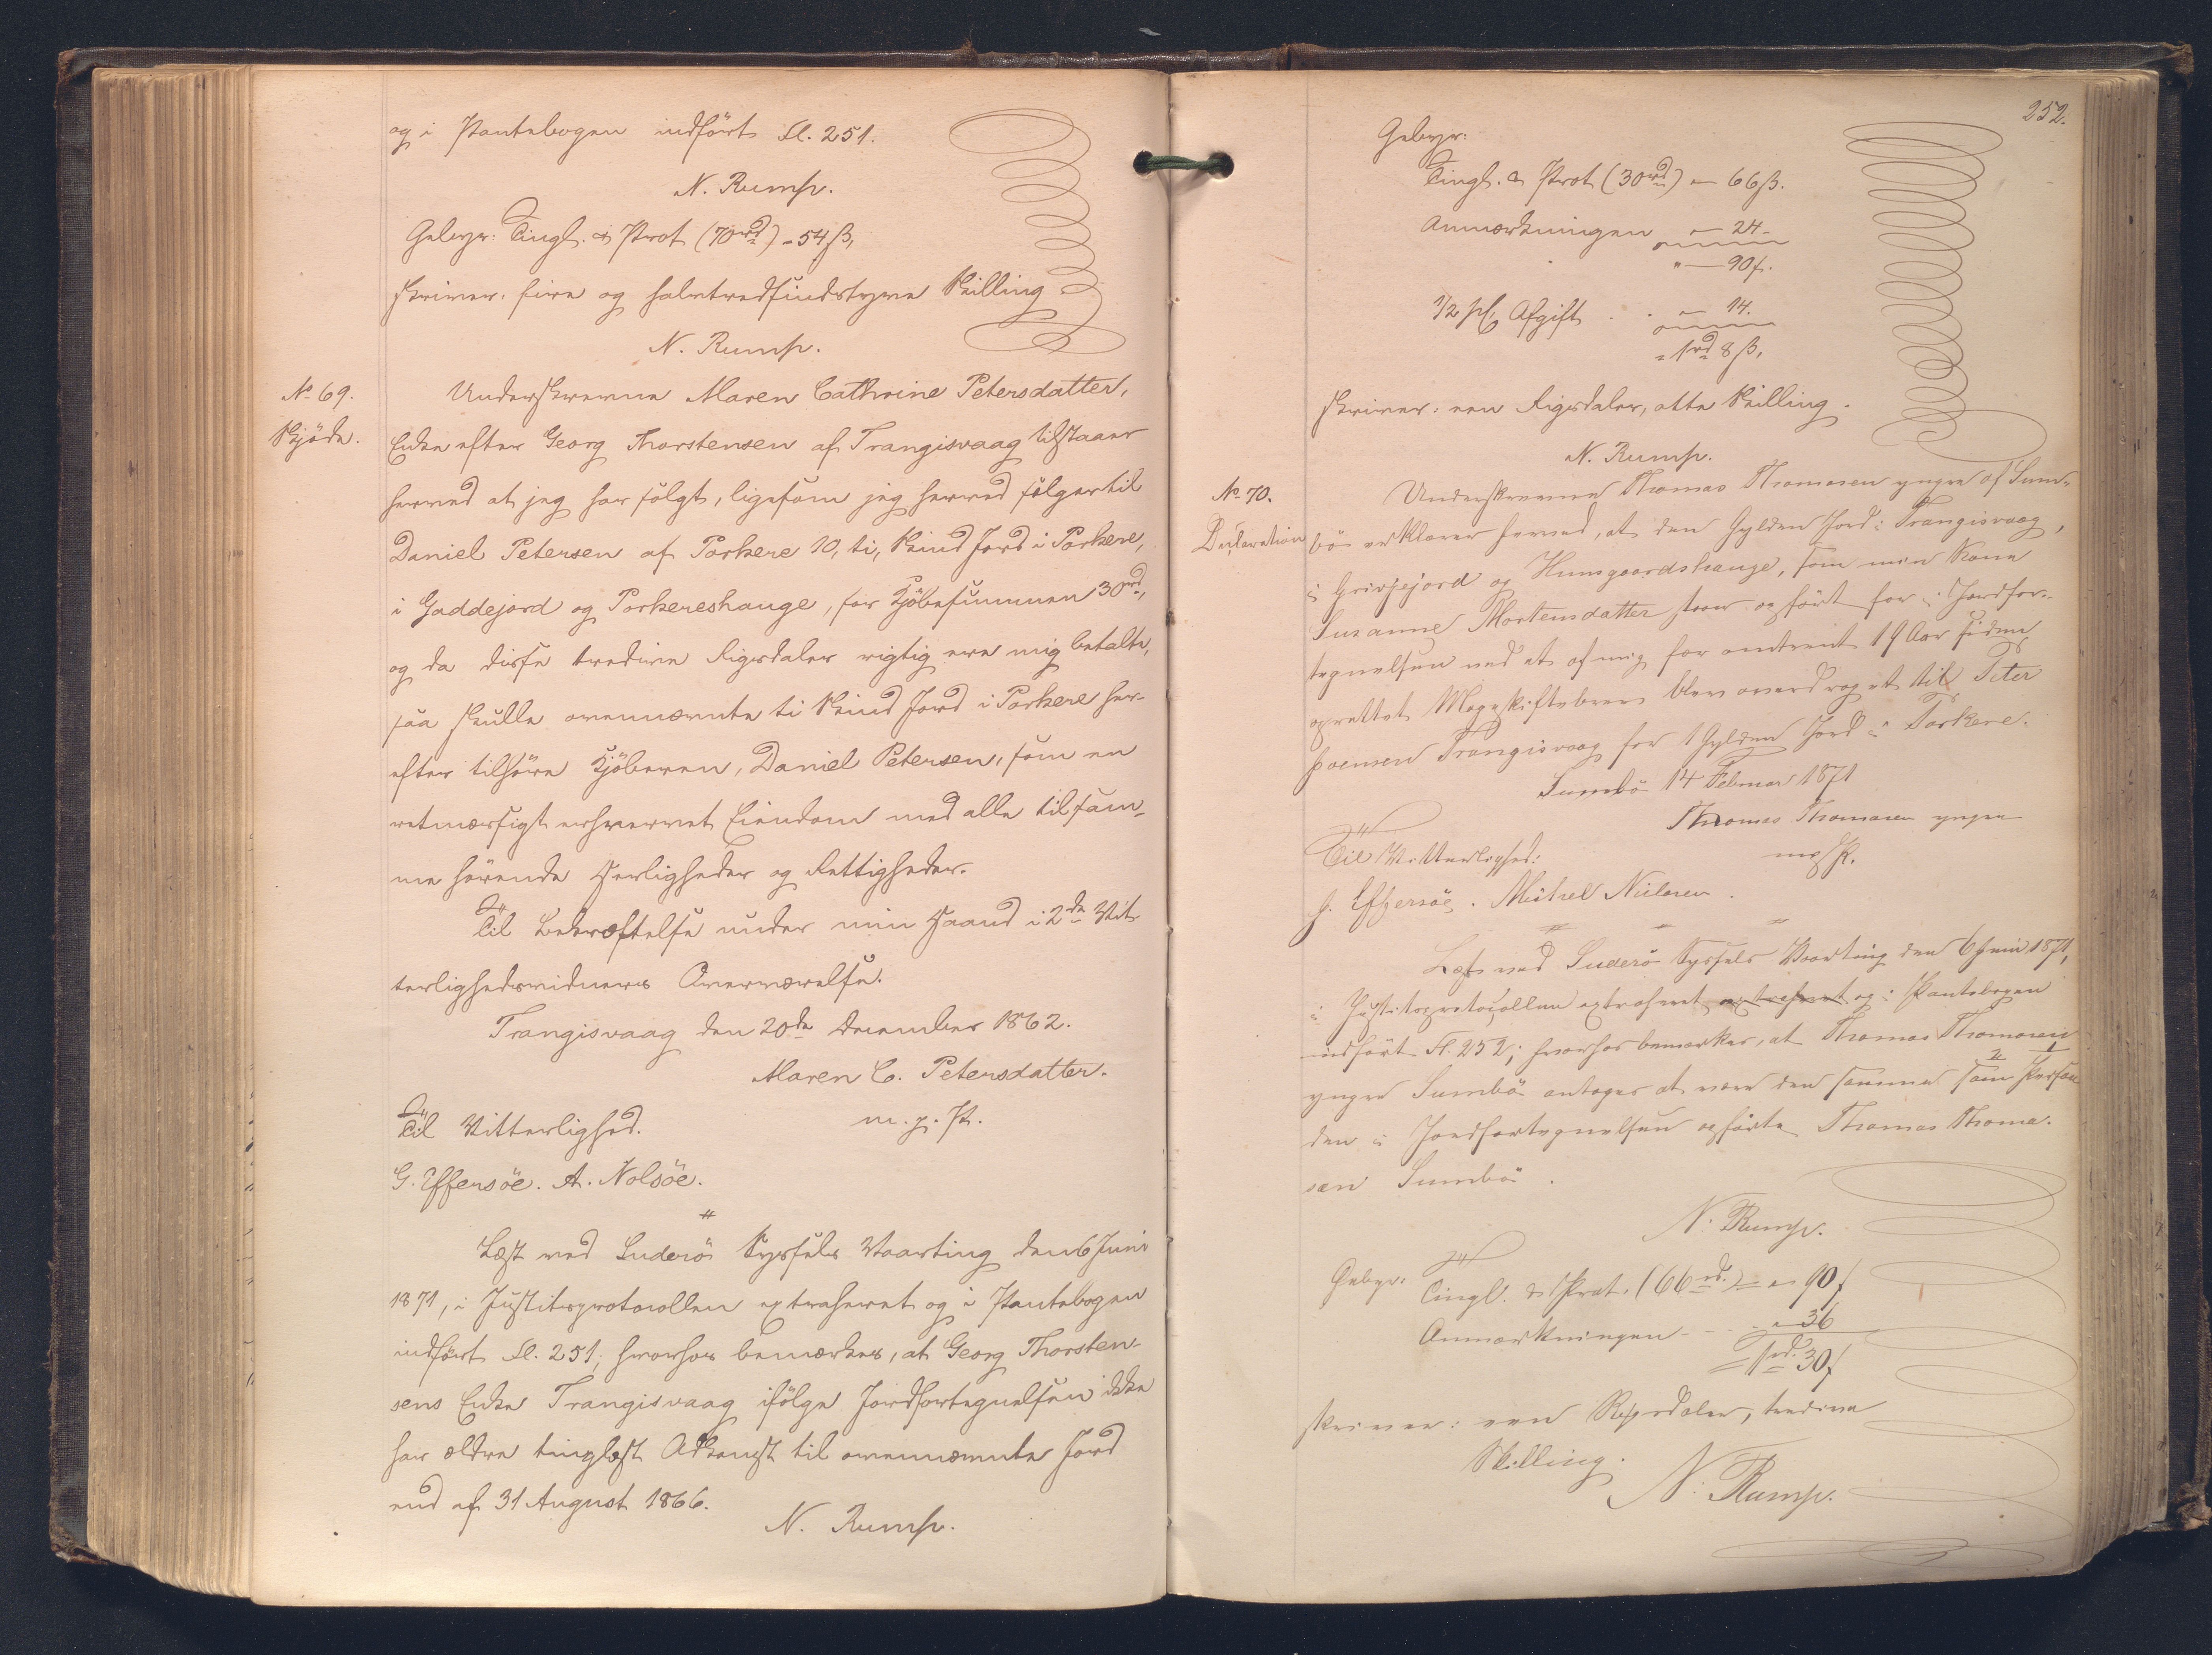 og i Pantebogen indført Fl. 251.
N. Rump.
Gebyr: Tingl. & Prot (70rd) - 54 ß,
skriver: fire og halvtredsindstyve Skilling
N. Rump.
No 69.
Skjøde.
Underskrevne Maren Cathrine Petersdatter,
Enke efter Georg Thorstensen af Trangisvaag tilstaaer
herved at jeg har solgt, ligesom jeg herved sælger til
Daniel Petersen af Porkere 10, ti, Skind Jord i Porkere,
i Gaddejord og Porkereshauge, for Kjøbesummen 30rd,
og da disse tredive Rigsdaler rigtig ere mig betalte,
saa skulle ovennævnte ti Skind Jord i Porkere her-
efter tilhøre Kjøberen, Daniel Petersen, som en
retmæssigt erhvervet Eiendom med alle tilsam-
me hørende Herligheder og Rettigheder.
Til Bekræftelse under min Haand i 2de Vit-
terlighedsvidners Overværelse.
Trangisvaag den 20de December 1862.
Maren C. Petersdatter.
Til Vitterlighed. m. p. P.
G. Effersöe. A. Nolsöe.
Læst ved Suderö Syssels Vaarting den 6 Juni
1871, i Justitsprotocollen extraheret og i Pantebogen
indført Fl. 251; hvorhos bemærkes, at Georg Thorsten-
sens Enke Trangisvaag ifølge Jordfortegnelsen ikke
har ældre tinglæst Adkomst til ovennævnte Jord
end af 31 August 1866.
N. Rump.
252.
Gebyr:
Tingl. & Prot (30rd) - 66 ß.
Anmærkningen - 24 -
" - 90 ß.
1/2 pCt Afgift . . - 14.
= 1rd 8 ß,
skriver: een Rigsdaler, otte Skilling.
N. Rump.
No 70.
Declaration
Underskrevne Thomas Thomasen yngre af Sum-
bö erklærer herved, at den Gylden Jord i Trangisvaag,
i og Humgaardshauge, som min Kone
Susanne Mortensdatter staar opført for i Jordfor-
tegnelsen ved et af mig for omtrent 19 Aar siden
oprettet Mageskiftebrev blev overdraget til Peter
Poulsen Trangisvaag for 1 Gylden Jord i Porkere.
Sumbö 14 Februar 1871
Thomas Thomasen yngre
Til Vitterlighed: m p P.
J. Effersöe. Michel Nielsen.
Læst ved Suderö Syssels Vaarting den 6 Juni 1871,
i Justitsprotocollen extraheret extraheret og i Pantebogen
indført Fl. 252; hvorhos bemærkes, at Thomas Thomasen
yngre Sumbö antages at være den samme som Person
den i Jordfortegnelsen opførte Thomas Thoma-
sen Sumbö.
N. Rump.
Gebyr: Tingl. & Prot. (66rd.) = - 90 ß
Anmærkningen - - - 36
= 1rd. 30 ß
skriver: een Rigsdaler, tredive
Skilling.
N. Rump.